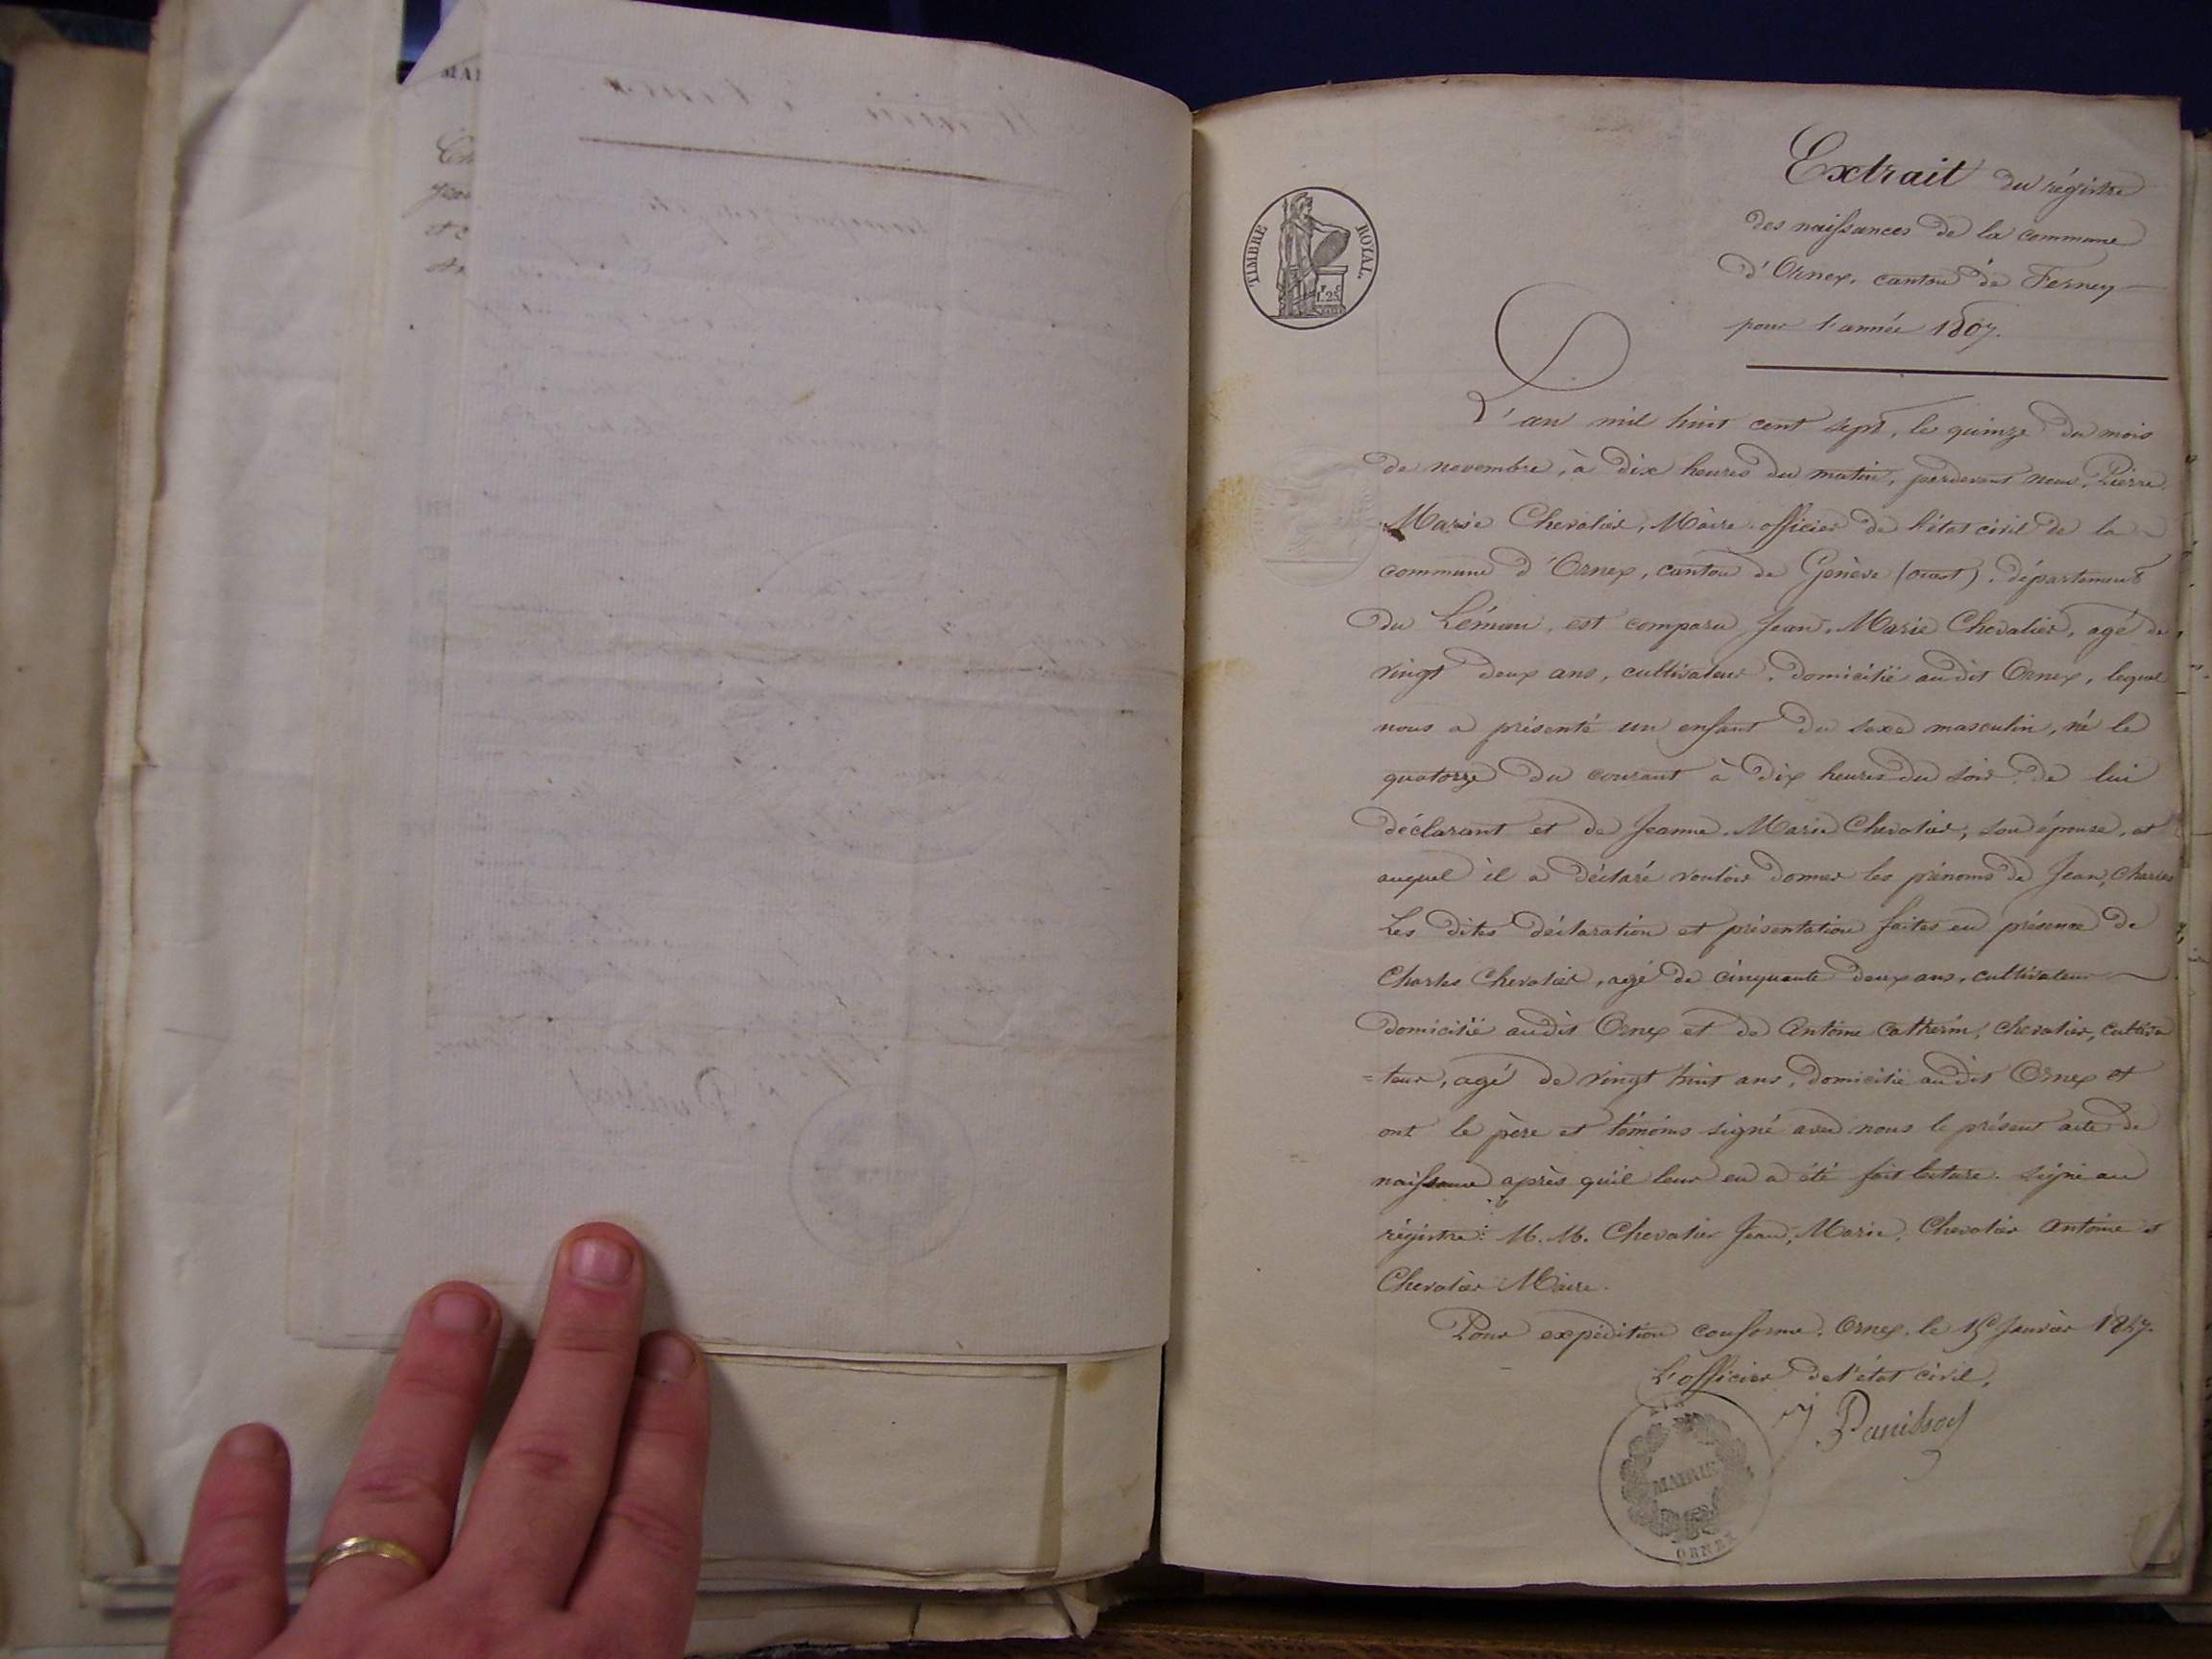 MAI
TIMBRE ROYAL
1.25
Extrait du régistre
des naissances de la commune
d'Ornex, canton de Ferney
pour l'année 1807.
L'an mil huit cent sept, le quinze du mois
de novembre, à dix heures du matin, pardevant nous, Pierre
Marie Chevalier, Maire officier de l'état civil de la
commune d'Ornex, canton de Genève (ouest), département
du Léman, est comparu Jean, Marie Chevalier, agé de
vingt deux ans, cultivateur, domicilié audit Ornex, lequel
nous a présenté un enfant du sexe masculin, né le
quatorze du courant à dix heures du soir, de lui
déclarant et de Jeanne, Marie Chevalier, son épouse, et
auquel il a déclaré vouloir donner les prénoms de Jean, Charles
Les dites déclaration et présentation faites en présence de
Charles Chevalier, agé de cinquante deux ans, cultivateur
domicilié audit Ornex et de Antoine Catherin, Chevalier, cultiva
=teur, agé de vingt huit ans, domicilié audit Ornex et
ont le père et témoins signé avec nous le présent acte de
naissance après qu'il leur en a été fait lecture. Signé au
régistre: M. M. Chevalier Jean, Marie, Chevalier Antoine et
Chevalier Maire.
Pour expédition conforme. Ornex, le 15 Janvier 1847.
L'officier de l'état civil,
Panissod
AIN
MAIRIE
ORNEX